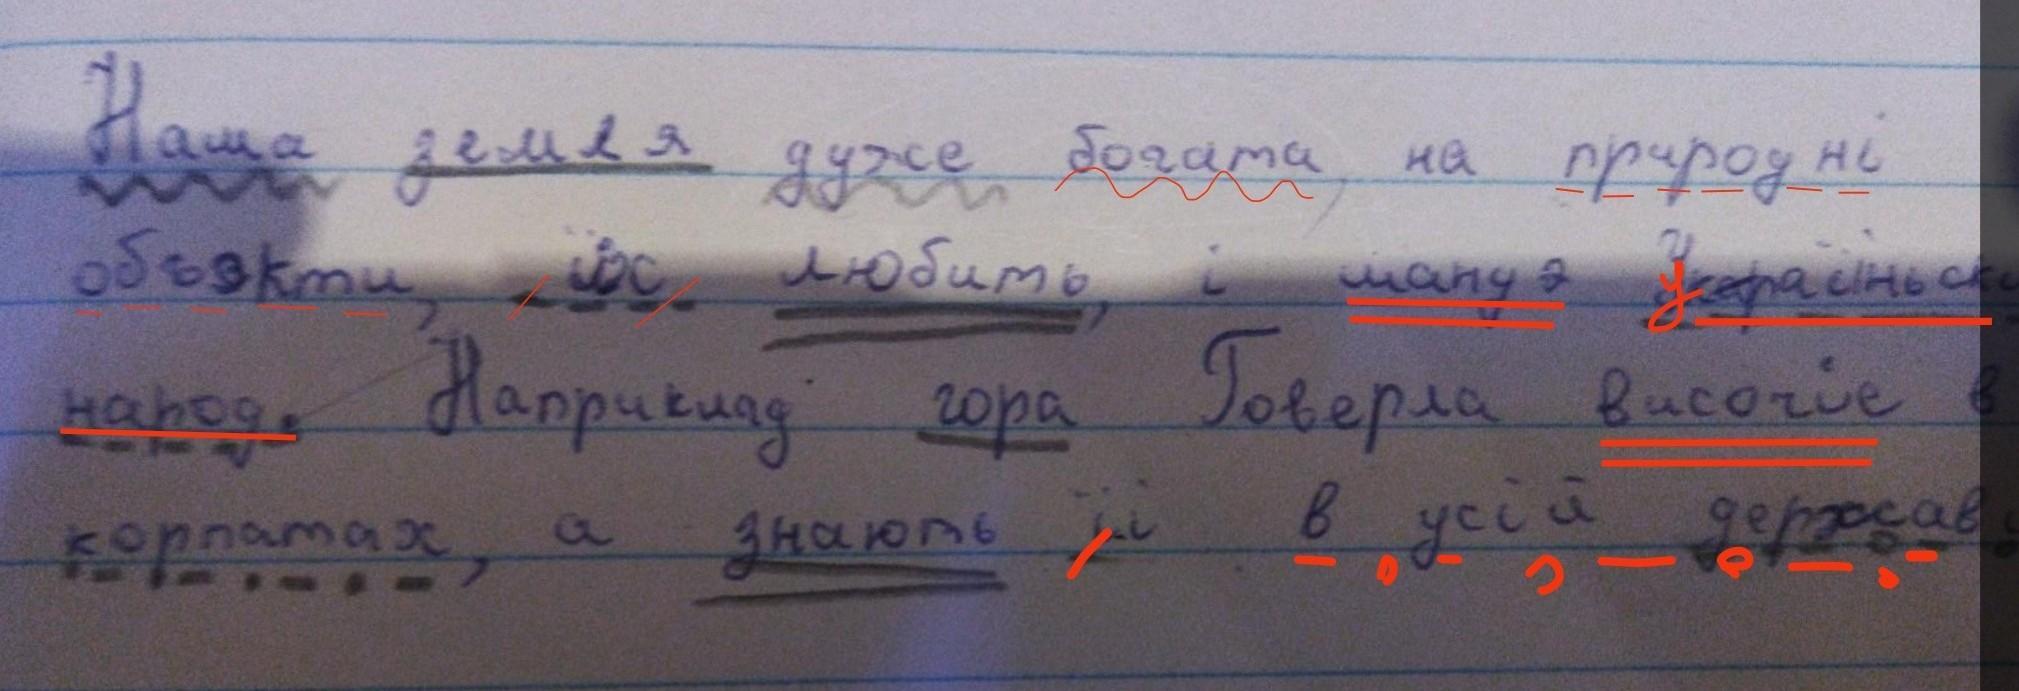 Наша земля дуже богата, на природні
объэкти, їх любить, і шанує Украйінськ
народ. Наприклад гора Говерла височіє в
корпатах, а знають її в усій державі